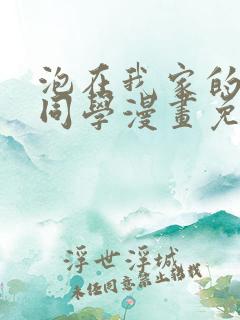 泡在我家的
同學漫畫免
浮世浮城
未经同意禁止转载